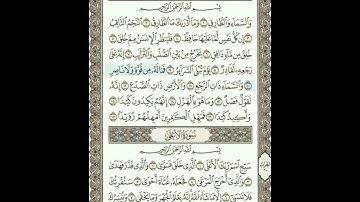 بِسْمِ ٱللَّهِ ٱلرَّحْمَٰنِ ٱلرَّحِيمِ
وَٱلسَّمَآءِ وَٱلطَّارِقِ ١ وَمَآ أَدْرَىٰكَ مَا ٱلطَّارِقُ ٢ ٱلنَّجْمُ ٱلثَّاقِبُ
٣ إِن كُلُّ نَفْسٍ لَّمَّا عَلَيْهَا حَافِظٌ ٤ فَلْيَنظُرِ ٱلْإِنسَٰنُ مِمَّ خُلِقَ ٥
خُلِقَ مِن مَّآءٍ دَافِقٍ ٦ يَخْرُجُ مِنۢ بَيْنِ ٱلصُّلْبِ وَٱلتَّرَآئِبِ ٧ إِنَّهُۥ عَلَىٰ
رَجْعِهِۦ لَقَادِرٌ ٨ يَوْمَ تُبْلَى ٱلسَّرَآئِرُ ٩ فَمَا لَهُۥ مِن قُوَّةٍ وَلَا نَاصِرٍ
١٠ وَٱلسَّمَآءِ ذَاتِ ٱلرَّجْعِ ١١ وَٱلْأَرْضِ ذَاتِ ٱلصَّدْعِ ١٢ إِنَّهُۥ
لَقَوْلٌ فَصْلٌ ١٣ وَمَا هُوَ بِٱلْهَزْلِ ١٤ إِنَّهُمْ يَكِيدُونَ كَيْدًا ١٥
وَأَكِيدُ كَيْدًا ١٦ فَمَهِّلِ ٱلْكَٰفِرِينَ أَمْهِلْهُمْ رُوَيْدًۢا ١٧
سُورَةُ الأَعْلَىٰ
بِسْمِ ٱللَّهِ ٱلرَّحْمَٰنِ ٱلرَّحِيمِ
سَبِّحِ ٱسْمَ رَبِّكَ ٱلْأَعْلَى ١ ٱلَّذِى خَلَقَ فَسَوَّىٰ ٢ وَٱلَّذِى قَدَّرَ فَهَدَىٰ
٣ وَٱلَّذِىٓ أَخْرَجَ ٱلْمَرْعَىٰ ٤ فَجَعَلَهُۥ غُثَآءً أَحْوَىٰ ٥ سَنُقْرِئُكَ
فَلَا تَنسَىٰٓ ٦ إِلَّا مَا شَآءَ ٱللَّهُ إِنَّهُۥ يَعْلَمُ ٱلْجَهْرَ وَمَا يَخْفَىٰ ٧ وَنُيَسِّرُكَ